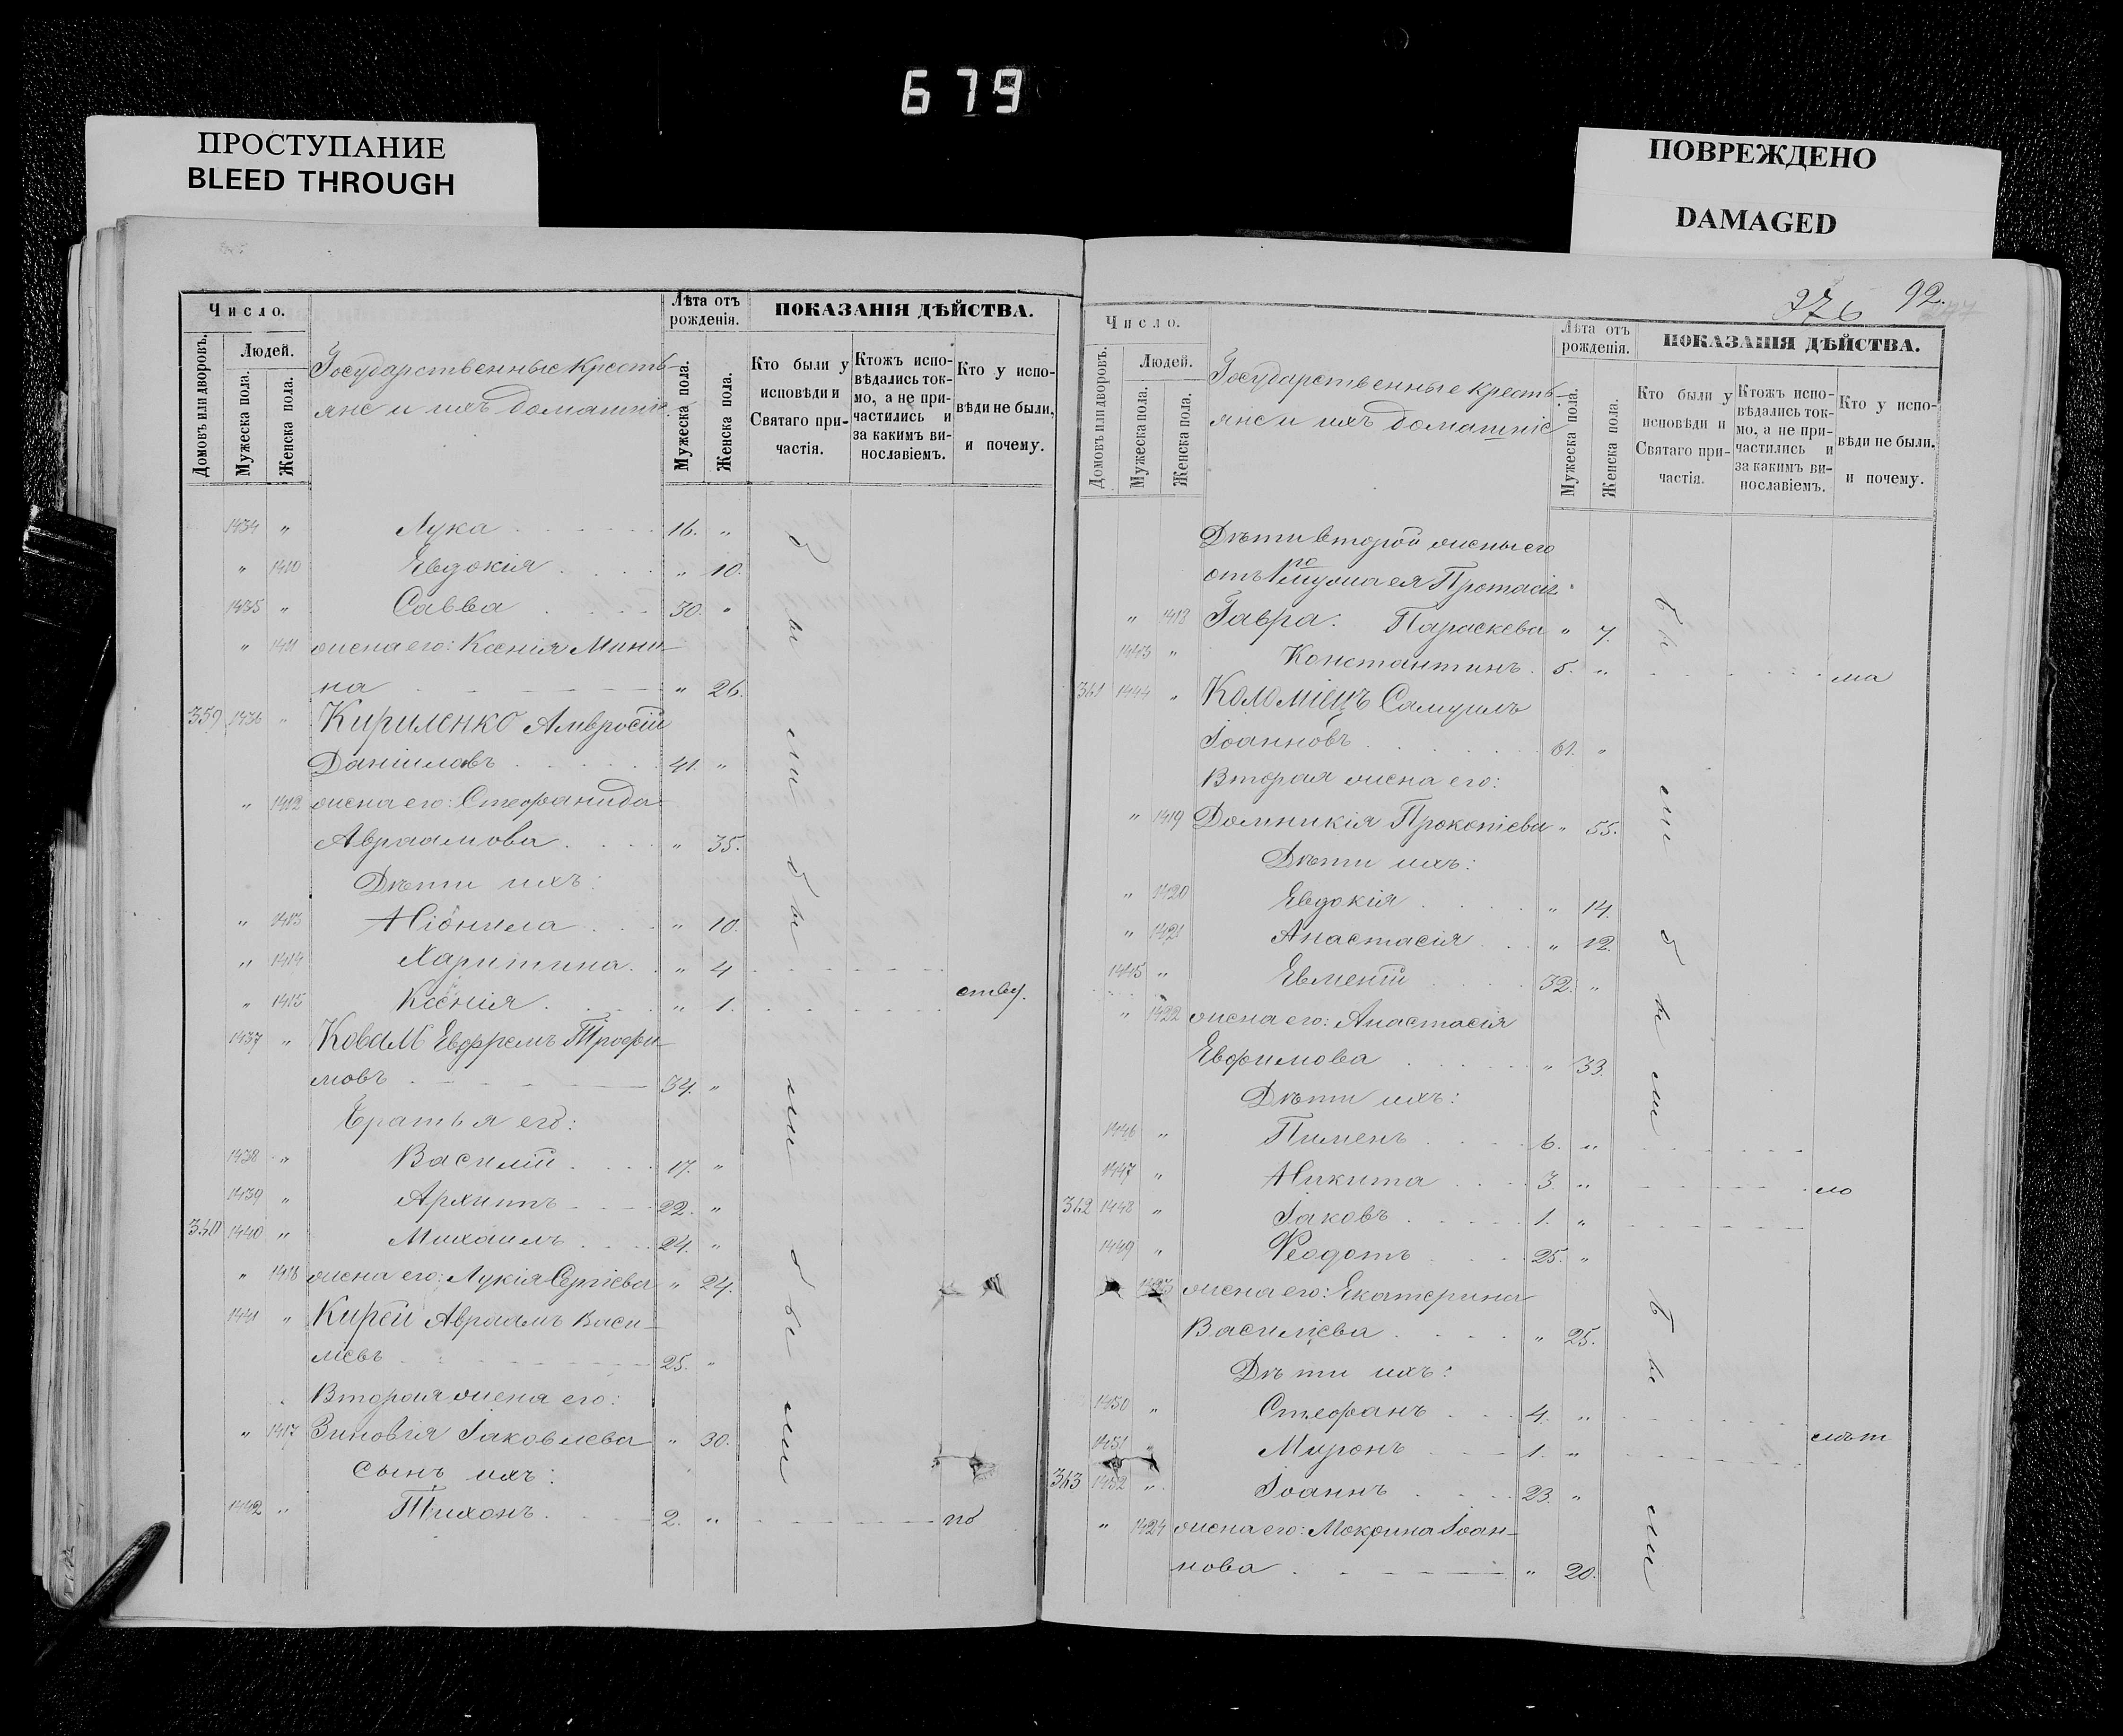 679
ПРОСТУПАНИЕ
BLEED THROUGH
ПОВРЕЖДЕНО
DAMAGED
Число.
Людей.
Домовъ или дворовъ.
Мужеска пола.
Женска пола.
Государственные кресть-
яне и ихъ домашніе.
Лѣта отъ рожденія.
Мужеска пола.
Женска пола.
ПОКАЗАНІЯ ДѢЙСТВА.
Кто были у исповѣди и Святаго при-частія.
Ктожъ испо-вѣдались ток-мо, а не при-частились и за какимъ ви-нославіемъ.
Кто у испо-вѣди не были, и почему.
1434 " Лука 16. "
" 1410 Евдокія " 10.
1435 " Савва 30. "
" 1411 жена его: Ксенія Мини-
на " 26.
359 1436 " Кириленко Амвросій
Даніиловъ 41. "
" 1412 жена его: Стефанида
Авраамова " 35.
Дѣти ихъ:
" 1413 Ніонила " 10.
" 1414 Харитина " 4
" 1415 Ксенія " 1.
1437 " Коваль Евфремъ Трофи-
мовъ 34. "
Братья его:
1438 " Василій 17. "
1439 " Архипъ 22. "
360 1440 " Михаилъ 24. "
" 1416 жена его: Лукія Сергіева " 24.
1441 " Кирей Авраамъ Васи-
ліевъ 25. "
Вторая жена его:
" 1417 Зиновія Іаковлева " 30.
Сынъ ихъ:
1442 " Тихонъ 2. " по
были были были
376 92.
Число.
Людей.
Домовъ или дворовъ.
Мужеска пола.
Женска пола.
Государственные кресть-
яне и ихъ домашніе
Лѣта отъ рожденія.
Мужеска пола.
Женска пола.
ПОКАЗАНІЯ ДѢЙСТВА.
Кто были у исповѣди и Святаго при-частія.
Ктожъ испо-вѣдались ток-мо, а не при-частились и за какимъ ви-нославіемъ.
Кто у испо-вѣди не были. и почему.
Дѣти второй жены его
отъ 1го мужа ея Протасія
" 1418 Гавра. Параскева " 7.
1443 " Константинъ 5. " ма
361 1444 " Коломіецъ Самуилъ
Іоанновъ 61. "
Вторая жена его:
" 1419 Домникія Прокопіева " 55.
Дѣти ихъ:
" 1420 Евдокія " 14.
" 1421 Анастасія " 12.
1445 " Евменій 32. "
" 1422 жена его: Анастасія
Евфимова " 33.
Дѣти ихъ:
1446 " Пименъ 6. "
1447 " Никита 3. " ло
362 1448 " Іаковъ 1. "
1449 " Ѳеодотъ 25. "
1423 жена его: Екатерина
Василіева " 25.
Дѣти ихъ:
1450 " Стефанъ 4. "
1451 " Миронъ 1. "
363 1452 " Іоаннъ 23. "
" 1424 жена его: Мокрина Іоан-
нова " 20.
были были были